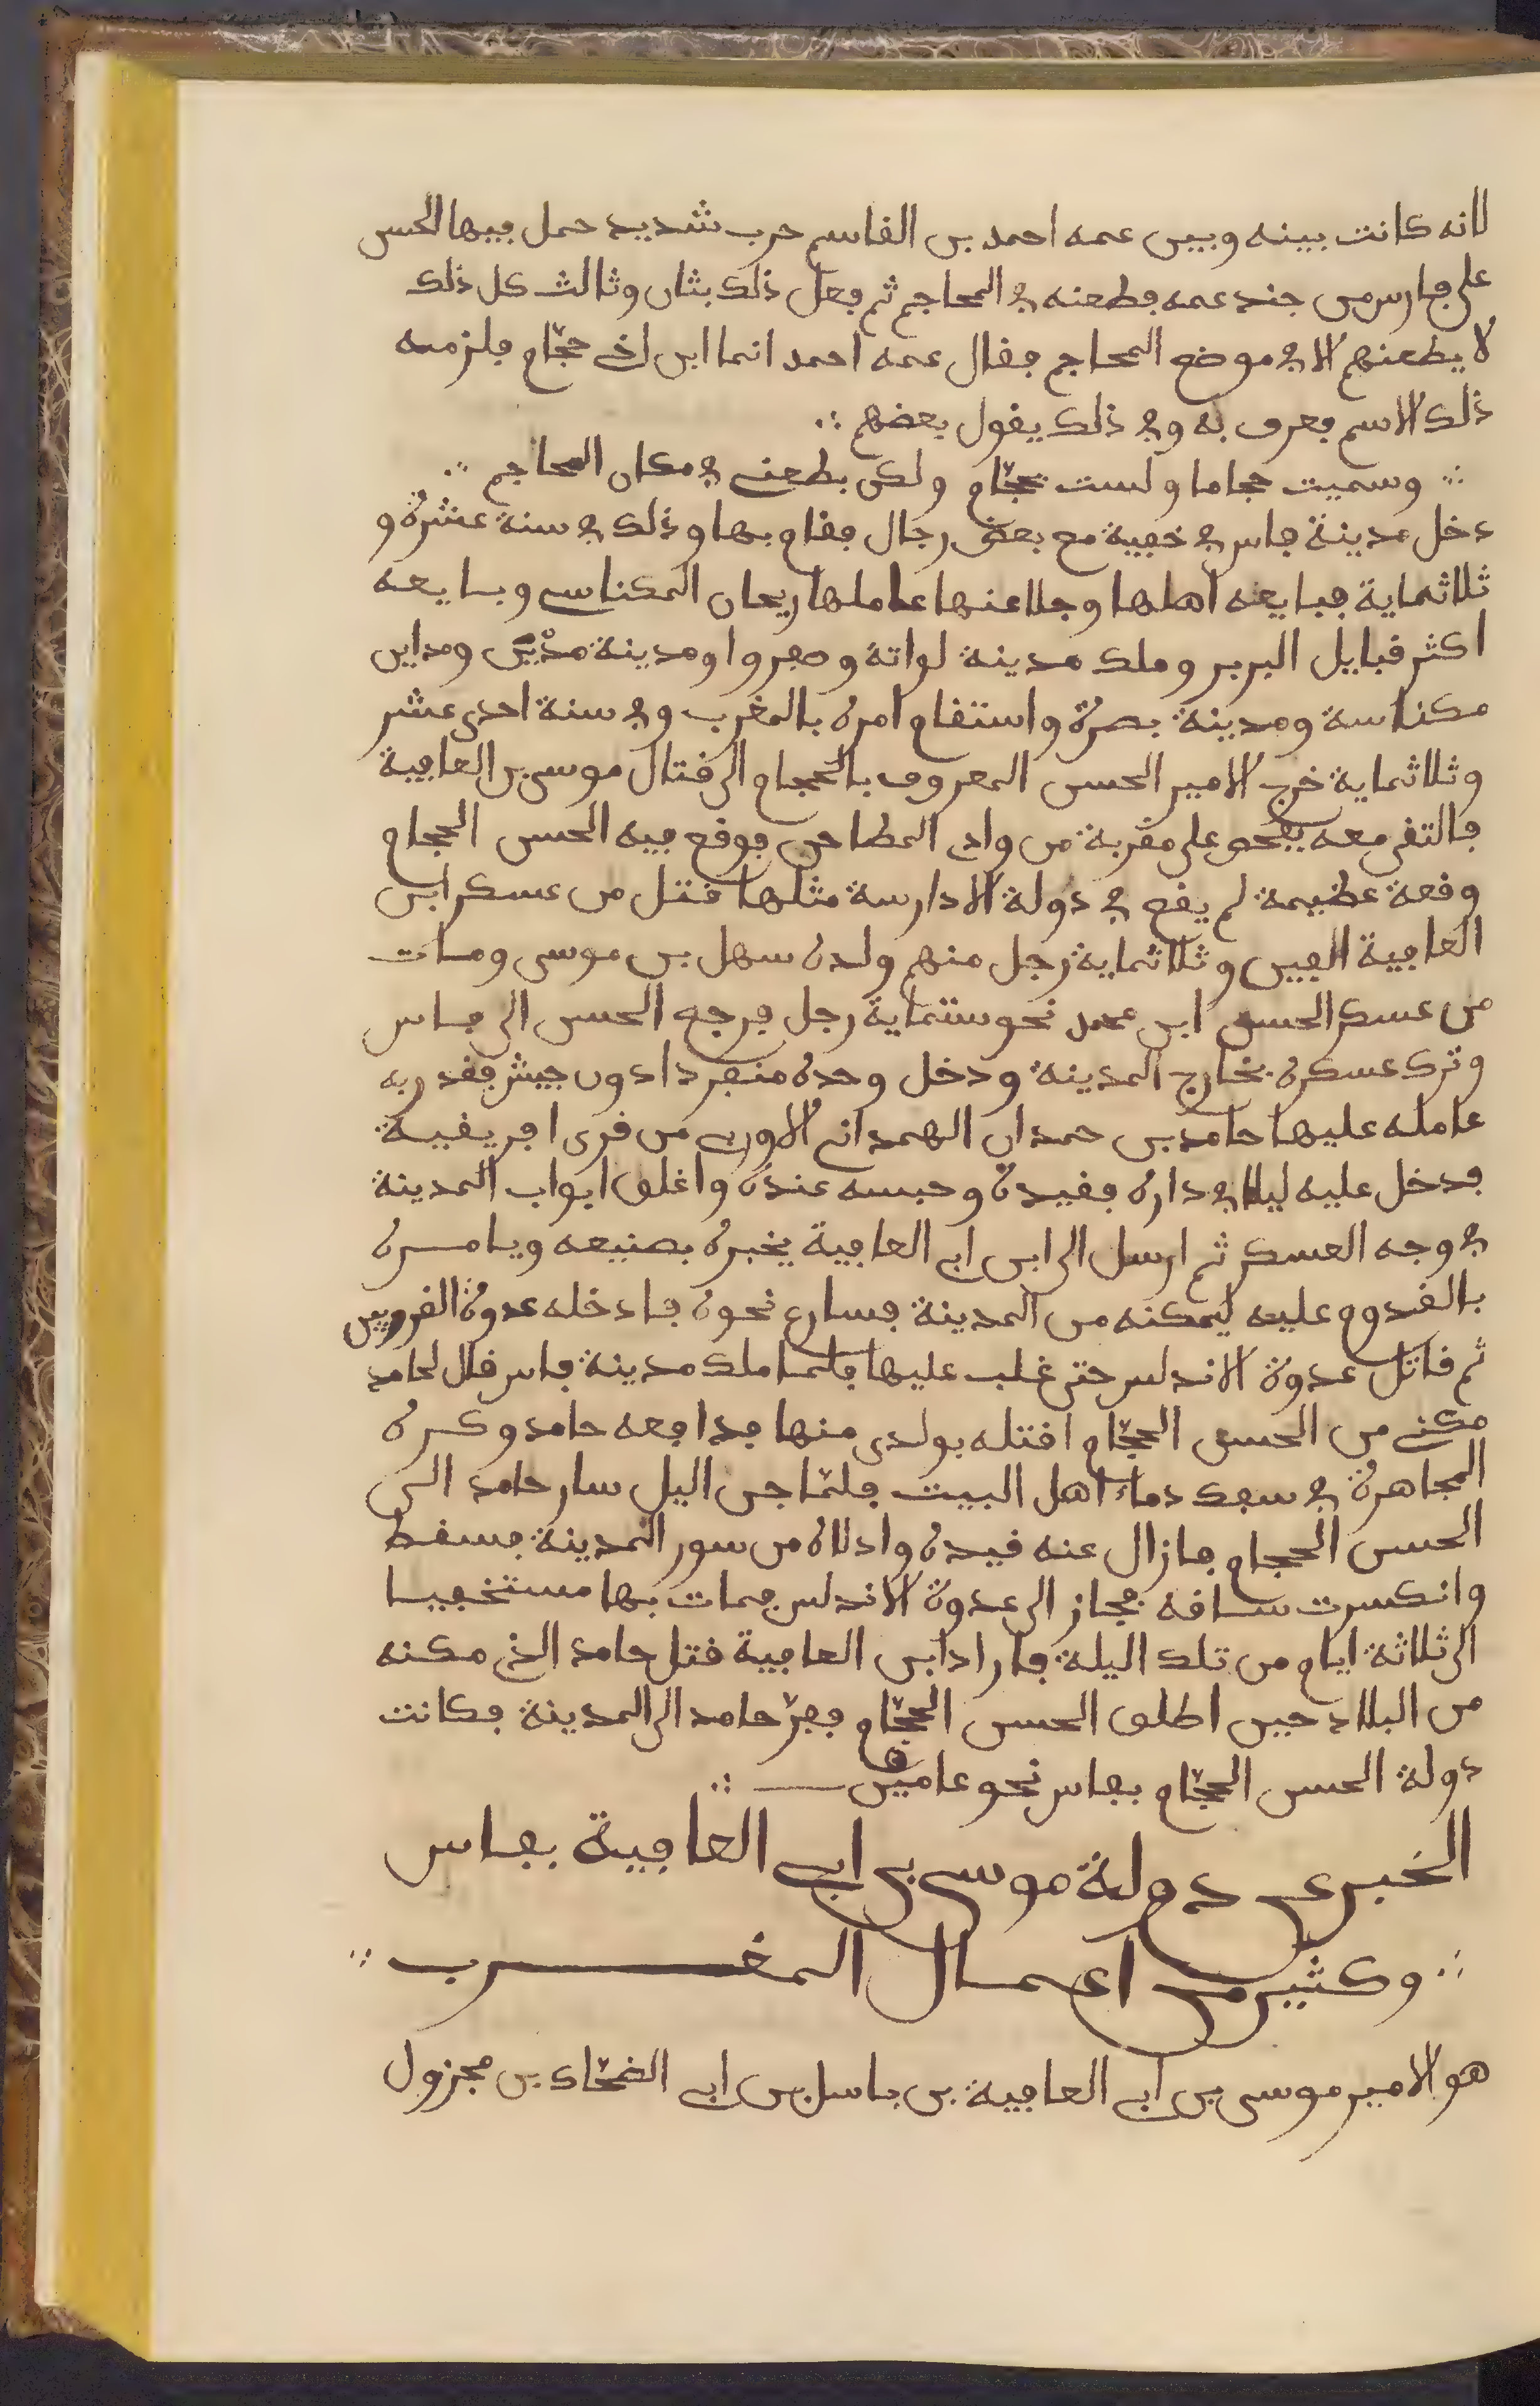 لانه كانت بينه وبين عمه احمد بن القاسم حرب شديد حمل فيها الحسن
على فارس من جند عمه فطعنه في المحاجم ثم فعل ذلك بثان وثالث كل ذلك
لا يطعنهم الا في موضع المحاجم فقال عمه احمد انما ابن اخي حجّام فلزمه
ذلك الاسم فعرف به وفي ذلك يقول بعضهم ∴
∴ وسميت حجاما ولست بحجّام ولكن بطعني في مكان المحاجم ∴
دخل مدينة فاس في خفية مع بعض رجال فقام بها وذلك في سنة عشرة و
ثلاثماية فبايعه اهلها وجلا عنها عاملها ريحان المكناسي وبايعه
اكثر قبايل البربر وملك مدينة لواتة وصفروا ومدينة مدْيَن ومداين
مكناسة ومدينة بصرة واستقام امره بالمغرب وفي سنة احدى عشر
وثلاثماية خرج الامير الحسن المعروف بالحجام الى قتال موسى بن العافية
فالتقى معه بفحص على مقربة من وادي المطاحن فوقع فيه الحسن الحجام
وقعة عظيمة لم يقع في دولة الادارسة مثلها قتل من عسكر ابن
العافية الفين وثلاثماية رجل منهم ولده سهل بن موسى ومات
من عسكر الحسن ابن محمد نحو ستماية رجل فرجع الحسن الى فاس
وترك عسكره بخارج المدينة ودخل وحده منفردا دون جيش فغدر به
عامله عليها حامد بن حمدان الهمداني الاوربي من قرى افريقية
فدخل عليه ليلا في داره فقيده وحبسه عنده واغلق ابواب المدينة
في وجه العسكر ثم ارسل الى ابن ابي العافية يخبره بصنيعه ويامره
بالقدوم عليه ليمكنه من المدينة فسارع نحوه فادخله عدوة القرويين
ثم قاتل عدوة الاندلس حتى غلب عليها فلما ملك مدينة فاس قال لحامد
مكني من الحسن الحجّام اقتله بولدي منها فدافعه حامد وكره
المجاهرة في سفك دماء اهل البيت فلمّا جن اليل سار حامد الى
الحسن الحجام فازال عنه قيده وادلاه من سور المدينة فسقط
وانكسرت ساقه فجاز الى عدوة الاندلس فمات بها مستخفيا
الى ثلاثة ايام من تلك اليلة فاراد ابن العافية قتل حامد الذي مكنه
من البلاد حين اطلق الحسن الحجّام ففرّ حامد الى المدينة فكانت
دولة الحسن الحجّام بفاس نحو عامين ∴
الخبر عن دولة موسى بن ابي العافية بفاس
∴ وكثير من اعمال المغرب ∴
هو الامير موسى بن ابي العافية بن باسل بن ابي الضحّاك بن مجزول